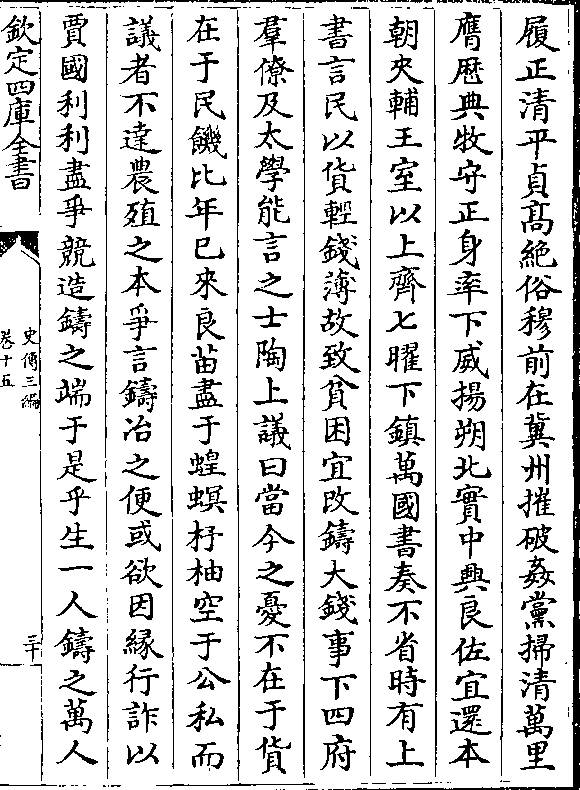 履正清平貞髙絶俗穆前在冀州摧破姦黨掃清萬里
膺歴典牧守正身率下威揚朔北實中興良佐宜還本
朝夾輔王室以上齊七曜下鎮萬國書奏不省時有上
書言民以貨輕錢薄故致貧困宜改鑄大錢事下四府
羣僚及太學能言之士陶上議曰當今之憂不在于貨
在于民饑比年已來良苗盡于蝗螟杼柚空于公私而
議者不達農殖之本爭言鑄冶之便或欲因緣行詐以
賈國利利盡爭競造鑄之端于是乎生一人鑄之萬人
欽定四庫全書
史傳三編
卷十五
三十